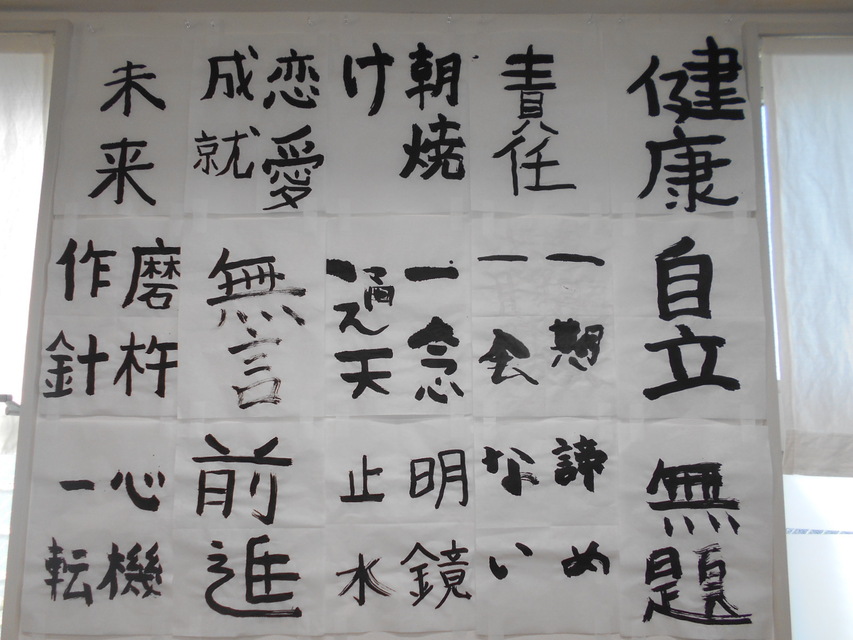 健康
責任
朝焼
け
恋愛
成就
未来
自立
一期
一会
一念
通天
無言
磨杵
作針
無題
諦め
ない
明鏡
止水
前進
心機
一転